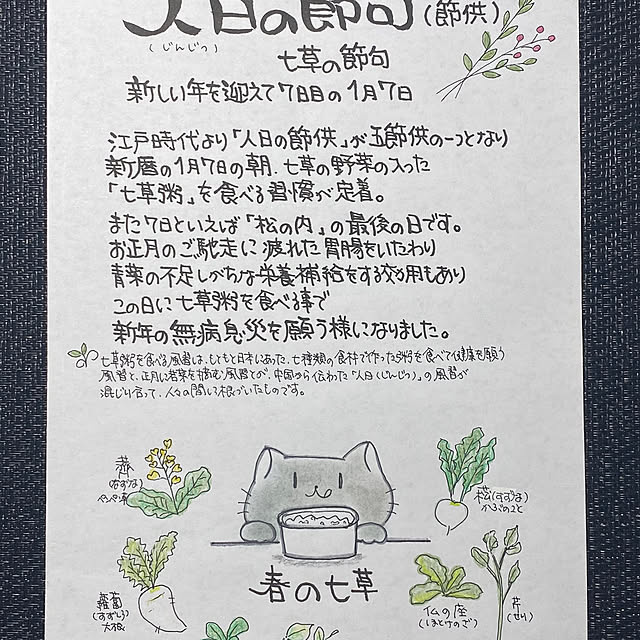 人日の節句(節供)
(じんじつ)
七草の節句
新しい年を迎えて7日目の1月7日
江戸時代より「人日の節供」が五節供の一つとなり
新暦の1月7日の朝、七草の野菜の入った
「七草粥」を食べる習慣が定着。
また7日といえば「松の内」の最後の日です。
お正月のご馳走に疲れた胃腸をいたわり
青菜の不足しがちな栄養補給をする効用もあり
この日に七草粥を食べる事で
新年の無病息災を願う様になりました。
七草粥を食べる風習は、もともと日本にあった、七種類の食材で作ったお粥を食べて健康を願う
風習と、正月に若菜を摘む風習とが、中国から伝わった「人日(じんじつ)」の風習が
混じり合って、人々の間にも根づいたものです。
薺
(なずな)
ペンペン草
松(すずな)
かぶのこと
春の七草
蘿蔔
(すずしろ)
大根
仏の座
(ほとけのざ)
芹
(せり)